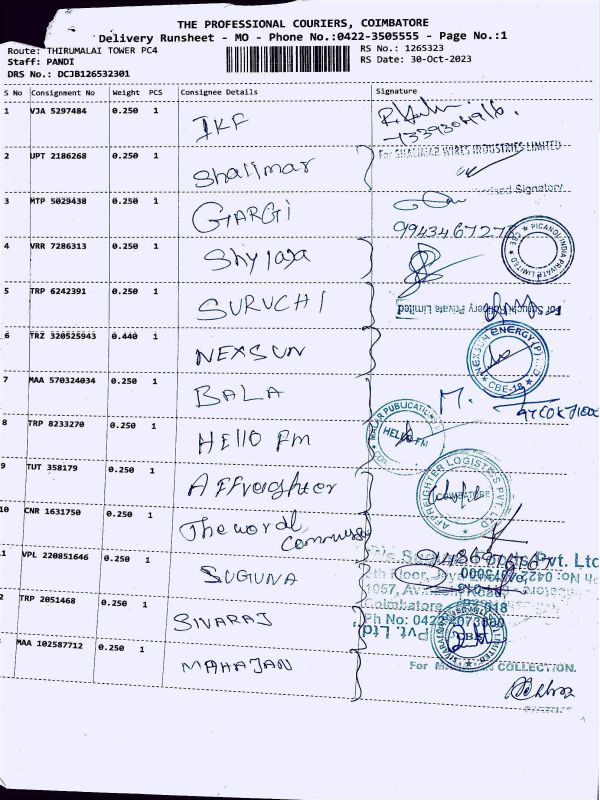 THE PROFESSIONAL COURIERS, COIMBATORE
Delivery Runsheet - MO - Phone No.:0422-3505555 - Page No.:1
Route: THIRUMALAI TOWER PC4 RS No.: 1265323
Staff: PANDI RS Date: 30-Oct-2023
DRS No.: DCJB126532301
S No Consignment No Weight PCS Consignee Details Signature
1 VJA 5297484 0.250 1 IKF
2 UPT 2186268 0.250 1 Shalimar For SHALIMAR WIRES INDUSTRIES LIMITED
Signatory
3 MTP 5029438 0.250 1 GARGI
9943467277
PICANOL INDIA PRIVATE LIMITED ★ CBE ★
4 VRR 7286313 0.250 1 Shyjaja
5 TRP 6242391 0.250 1 SURUCHI Private Limited
6 TRZ 320525943 0.440 1 NEXSUN
NEXSUN ENERGY (P) ★ CBE-18 ★
7 MAA 570324034 0.250 1 BALA M.
8 TRP 8233270 0.250 1 HEllo Fm
MALAR PUBLICATIONS HELLO FM
9 TUT 358179 0.250 1 AFFreighter
AFFREIGHTER LOGISTICS PVT. LTD COIMBATORE
10 CNR 1631750 0.250 1 The woral
VPL 220851646 0.250 1 SUGUNA
Pvt. Ltd
Floor,
1057, Road,
Coimbatore 018
Ph No: 0422
TRP 2051468 0.250 1 SIVARAJ Pvt. Ltd.
CBE
MAA 102587712 0.250 1 MAHAJAN
For COLLECTION.